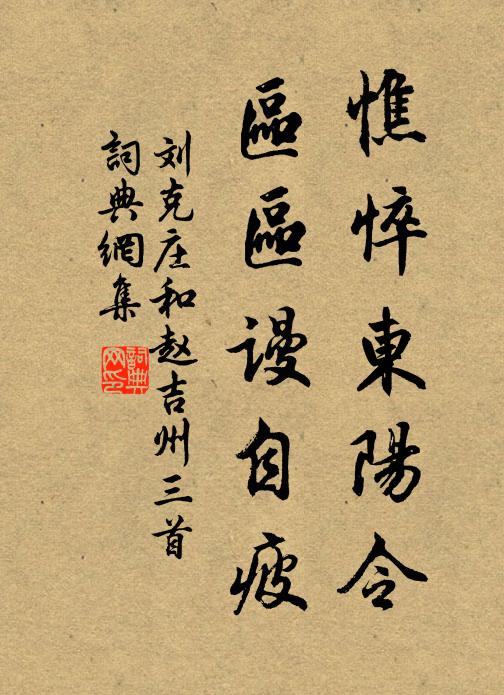 憔悴東陽令
區區謾自疲
刘克庄和赵吉州三首
詞典網集
詞典网印